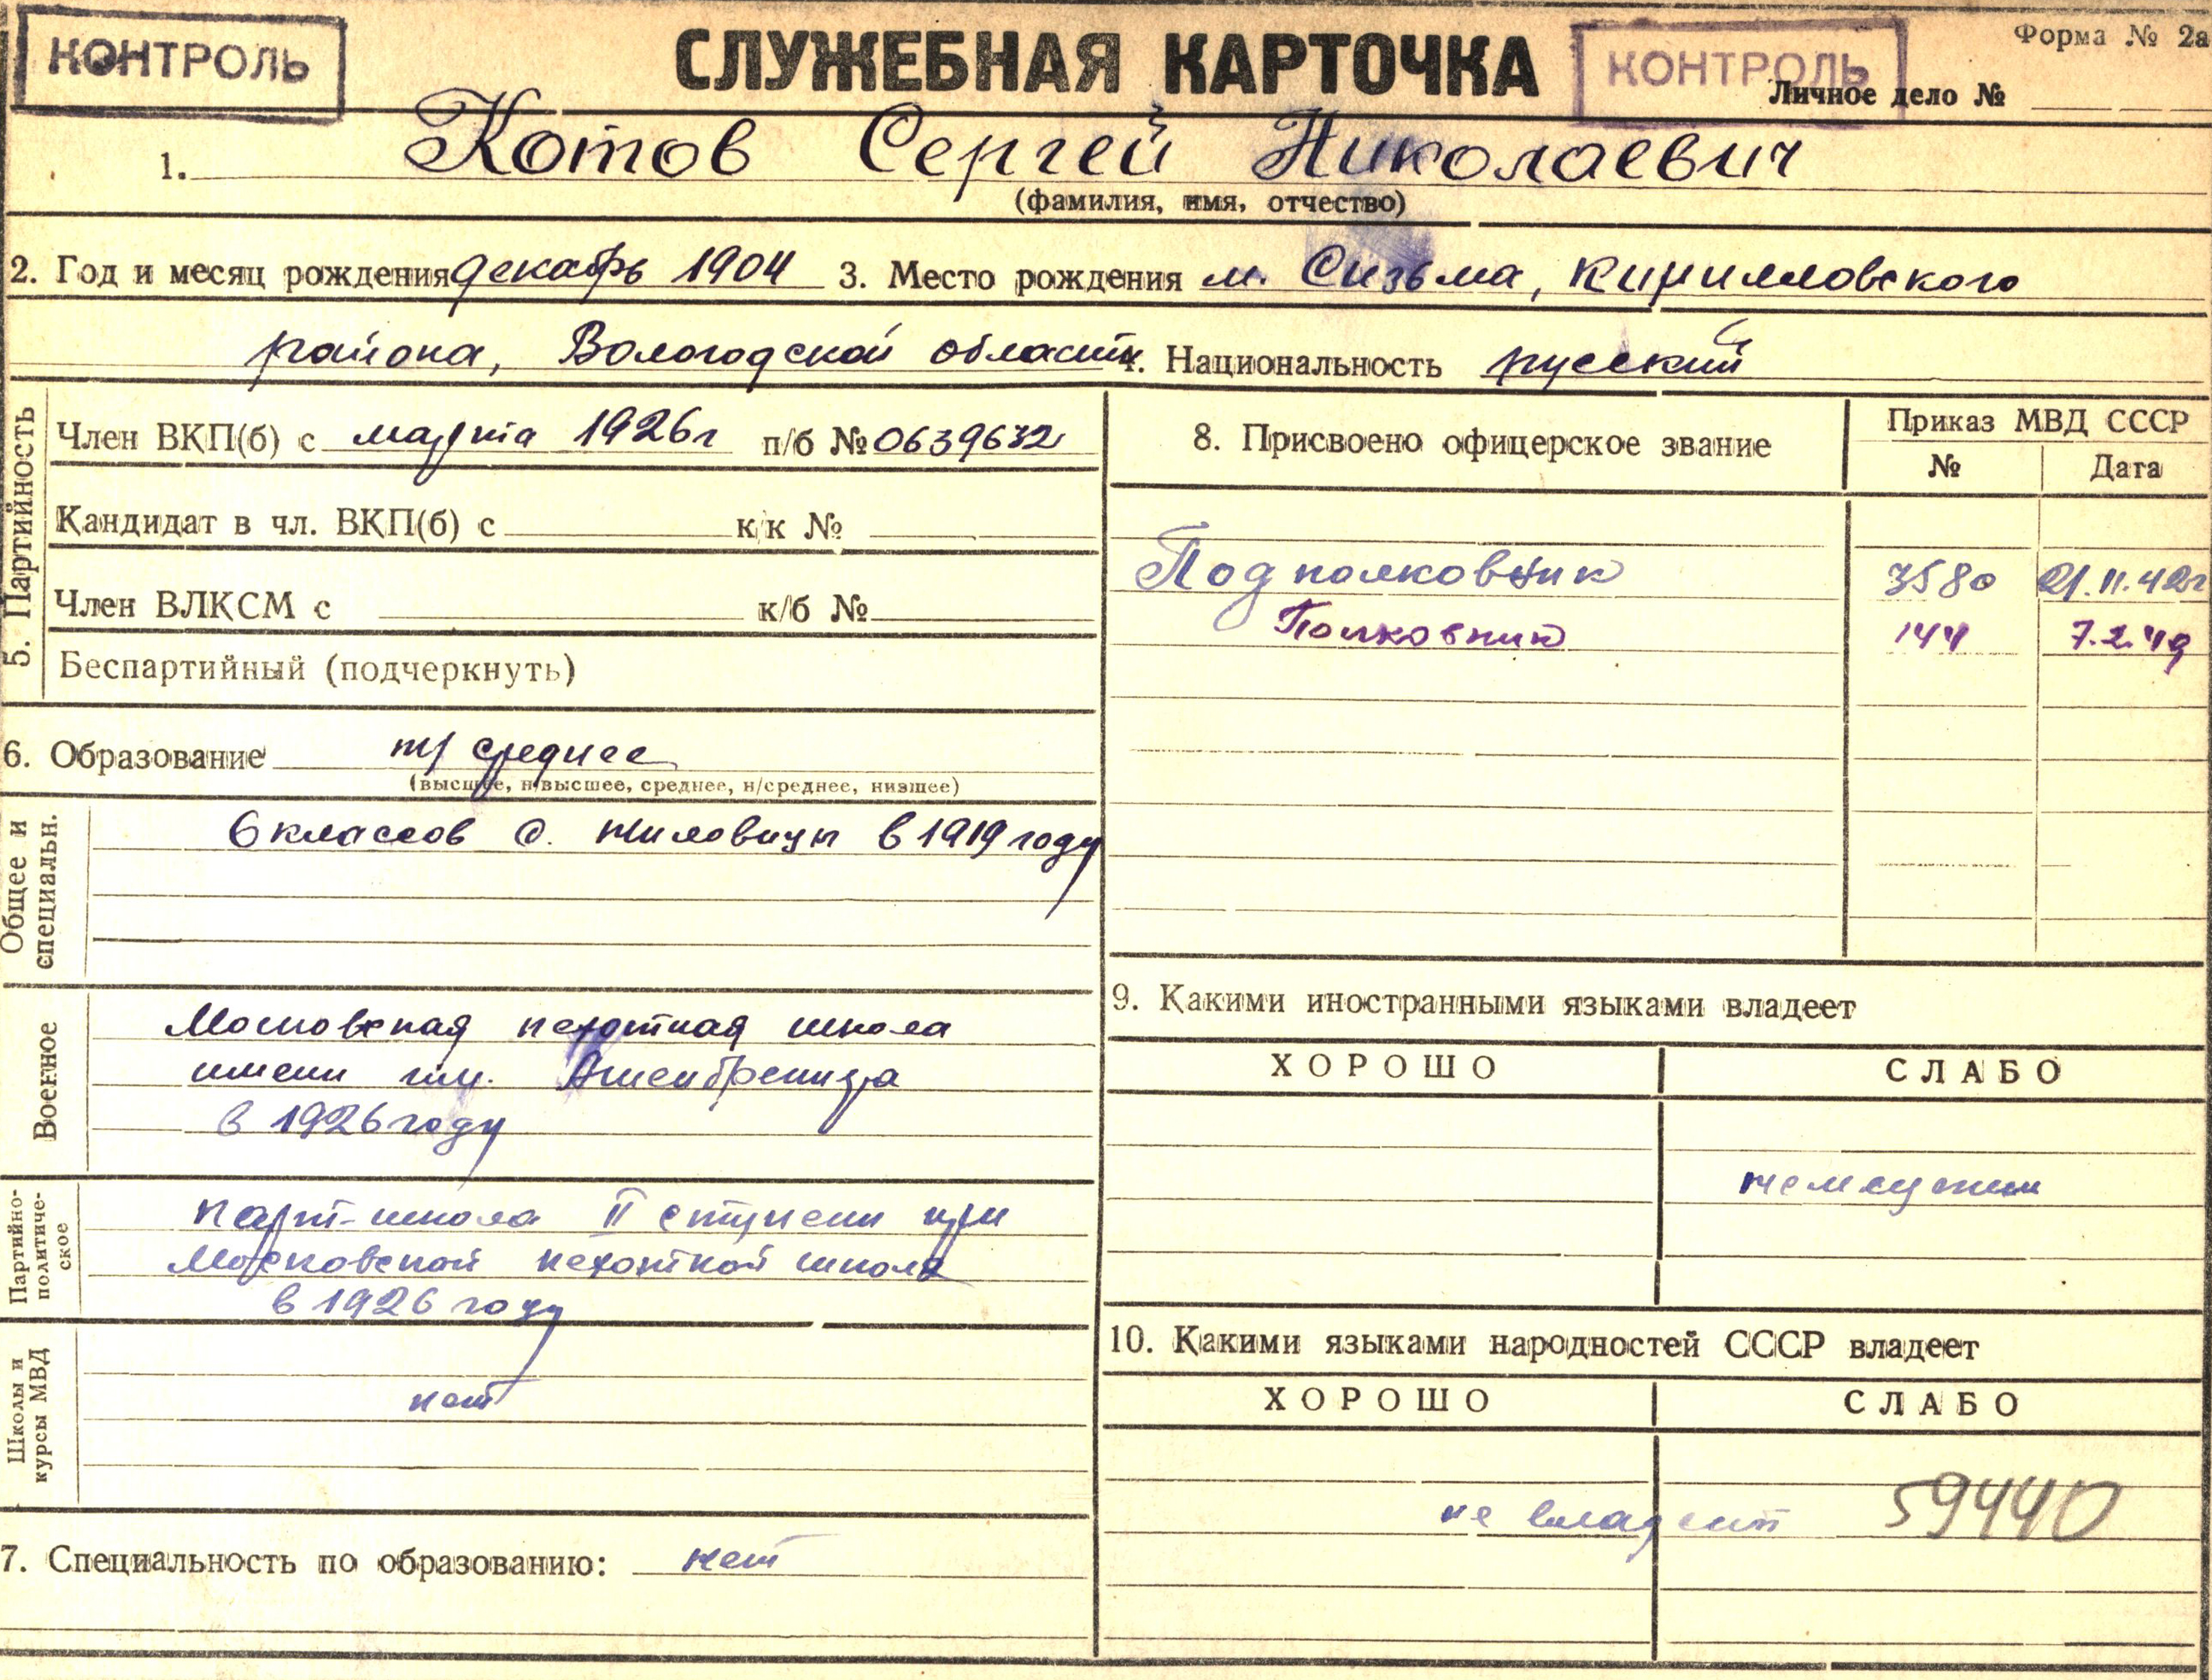 КОНТРОЛЬ
СЛУЖЕБНАЯ КАРТОЧКА
КОНТРОЛЬ
Форма № 2а
Личное дело №
1. Котов Сергей Николаевич
(фамилия, имя, отчество)
2. Год и месяц рождения декабрь 1904 3. Место рождения м. Сизьма, Кирилловского
района, Вологодской области 4. Национальность русский
5. Партийность
Член ВКП(б) с марта 1926г п/б № 0639632
Кандидат в чл. ВКП(б) с к/к №
Член ВЛКСМ с к/б №
Беспартийный (подчеркнуть)
6. Образование н/среднее
(высшее, н/высшее, среднее, н/среднее, низшее)
Общее и специальн.
6 классов с. в 1919 году
Военное
Московская пехотная школа
имени тов. Ашенбреннера
в 1926 году
Партийно-политиче-ское
парт-школа II ступени при
Московской пехотной школе
в 1926 году
Школы и курсы МВД
нет
7. Специальность по образованию: нет
8. Присвоено офицерское звание
Приказ МВД СССР
№ Дата
Подполковник 3580 21.11.42г
Полковник 144 7.2.49
9. Какими иностранными языками владеет
ХОРОШО СЛАБО
немецким
10. Какими языками народностей СССР владеет
ХОРОШО СЛАБО
не владеет 59440